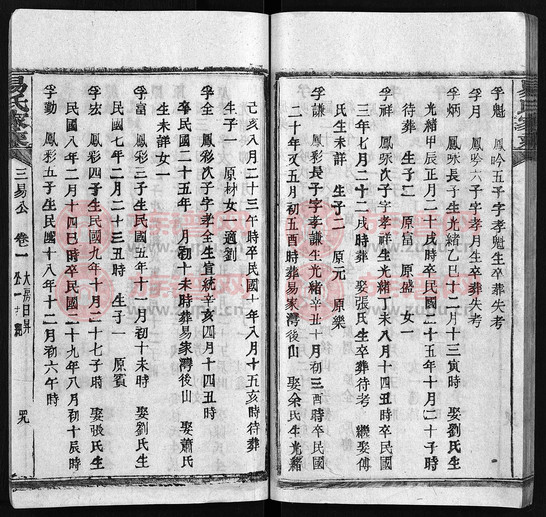 孚魁 鳳吟五子字孝魁生卒葬失考
孚月 鳳吟六子字孝月生卒葬失考
孚炳 鳳咏長子生光緒乙巳十二月十三寅時 娶劉氏生
光緒甲辰正月二十戌時卒民國二十五年十月二十子時
待葬 生子二 原富 原盛 女一
孚祥 鳳咏次子字孝祥生光緒丁未八月十四丑時卒民國
三年七月二十二戌時葬 娶張氏生卒葬待考 繼娶傅
氏生未詳 生子二 原元 原樂
孚謙 鳳彩長子字孝謙生光緒辛丑十月初三酉時卒民國
二十年又五月初五酉時葬易家灣後山 娶余氏生光緒
己亥八月二十三午時卒民國十年八月十五亥時待葬
生子一 原材女一適劉
孚全 鳳彩次子字孝全生宣統辛亥四月十四丑時
卒民國二十五年 月初十未時葬易家灣後山 娶蕭氏
生未詳女一
孚富 鳳彩三子生民國五年十一月初十未時 娶劉氏生
民國七年二月二十三丑時 生子一 原賓
孚宏 鳳彩四子生民國九年十月二十七子時 娶張氏生
民國八年二月十四巳時卒民國二十九年八月初十辰時
孚勤 鳳彩五子生民國十八年十二月初六午時
易氏家乘
三易公 卷一